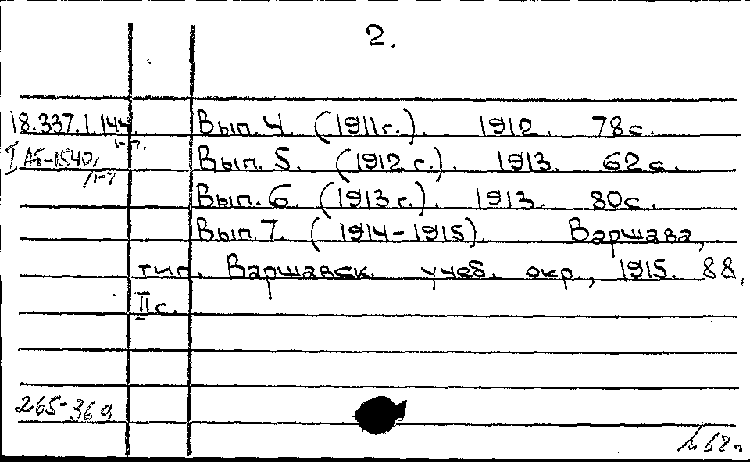 2.
18.337.1.144 Вып. 4. (1911г.). 1912. 78с.
1-7.
I АБ-1540/ Вып. 5. (1912 г.). 1913. 62с.
/1-7
Вып. 6. (1913 г.). 1913. 80с.
Вып. 7. (1914-1915). Варшава,
тип. Варшавск. учеб. окр., 1915. 88,
II с.
265-369